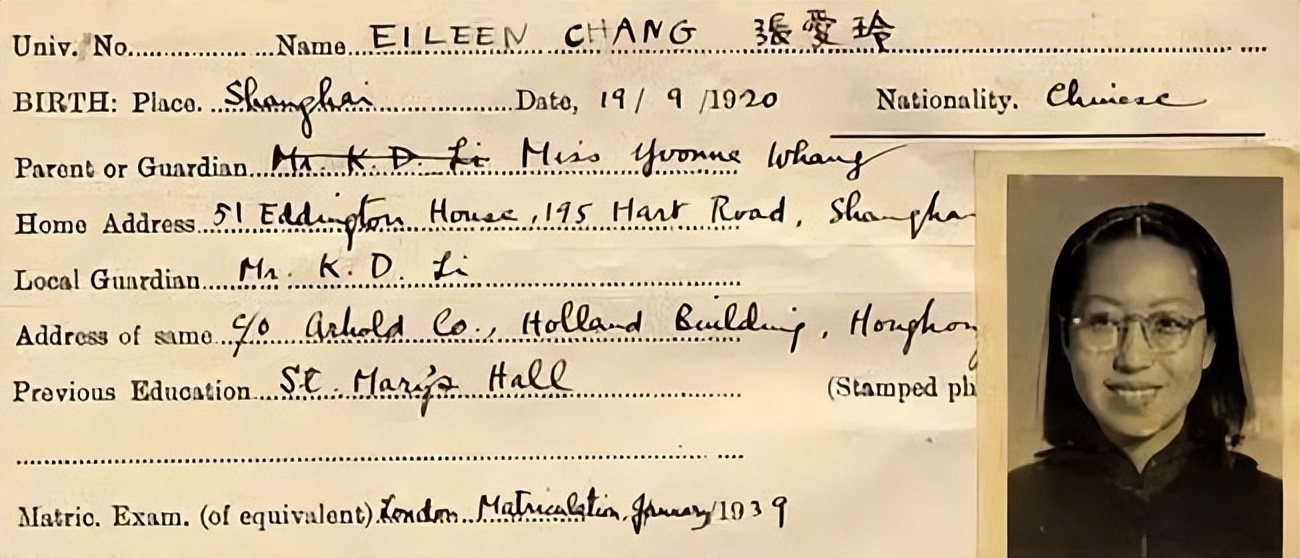 Univ. No. Name EILEEN CHANG 張愛玲
BIRTH: Place. Shanghai Date, 19/ 9 /1920 Nationality. Chinese
Parent or Guardian Mr. K. D. Li Miss Yvonne Whang
Home Address 51 Eddington House, 195 Hart Road, Shangha
Local Guardian Mr. K. D. Li
Address of same c/o Arhold Co., Holland Building, Hongkong
Previous Education St. Mary's Hall (Stamped ph
Matric. Exam. (of equivalent) London Matriculation, January/1939